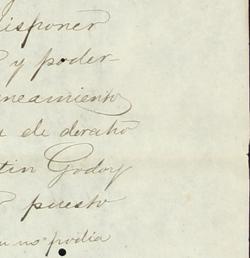 disponer
y poder
neamiento
de derecho
tin Godoy
puesto
no podia